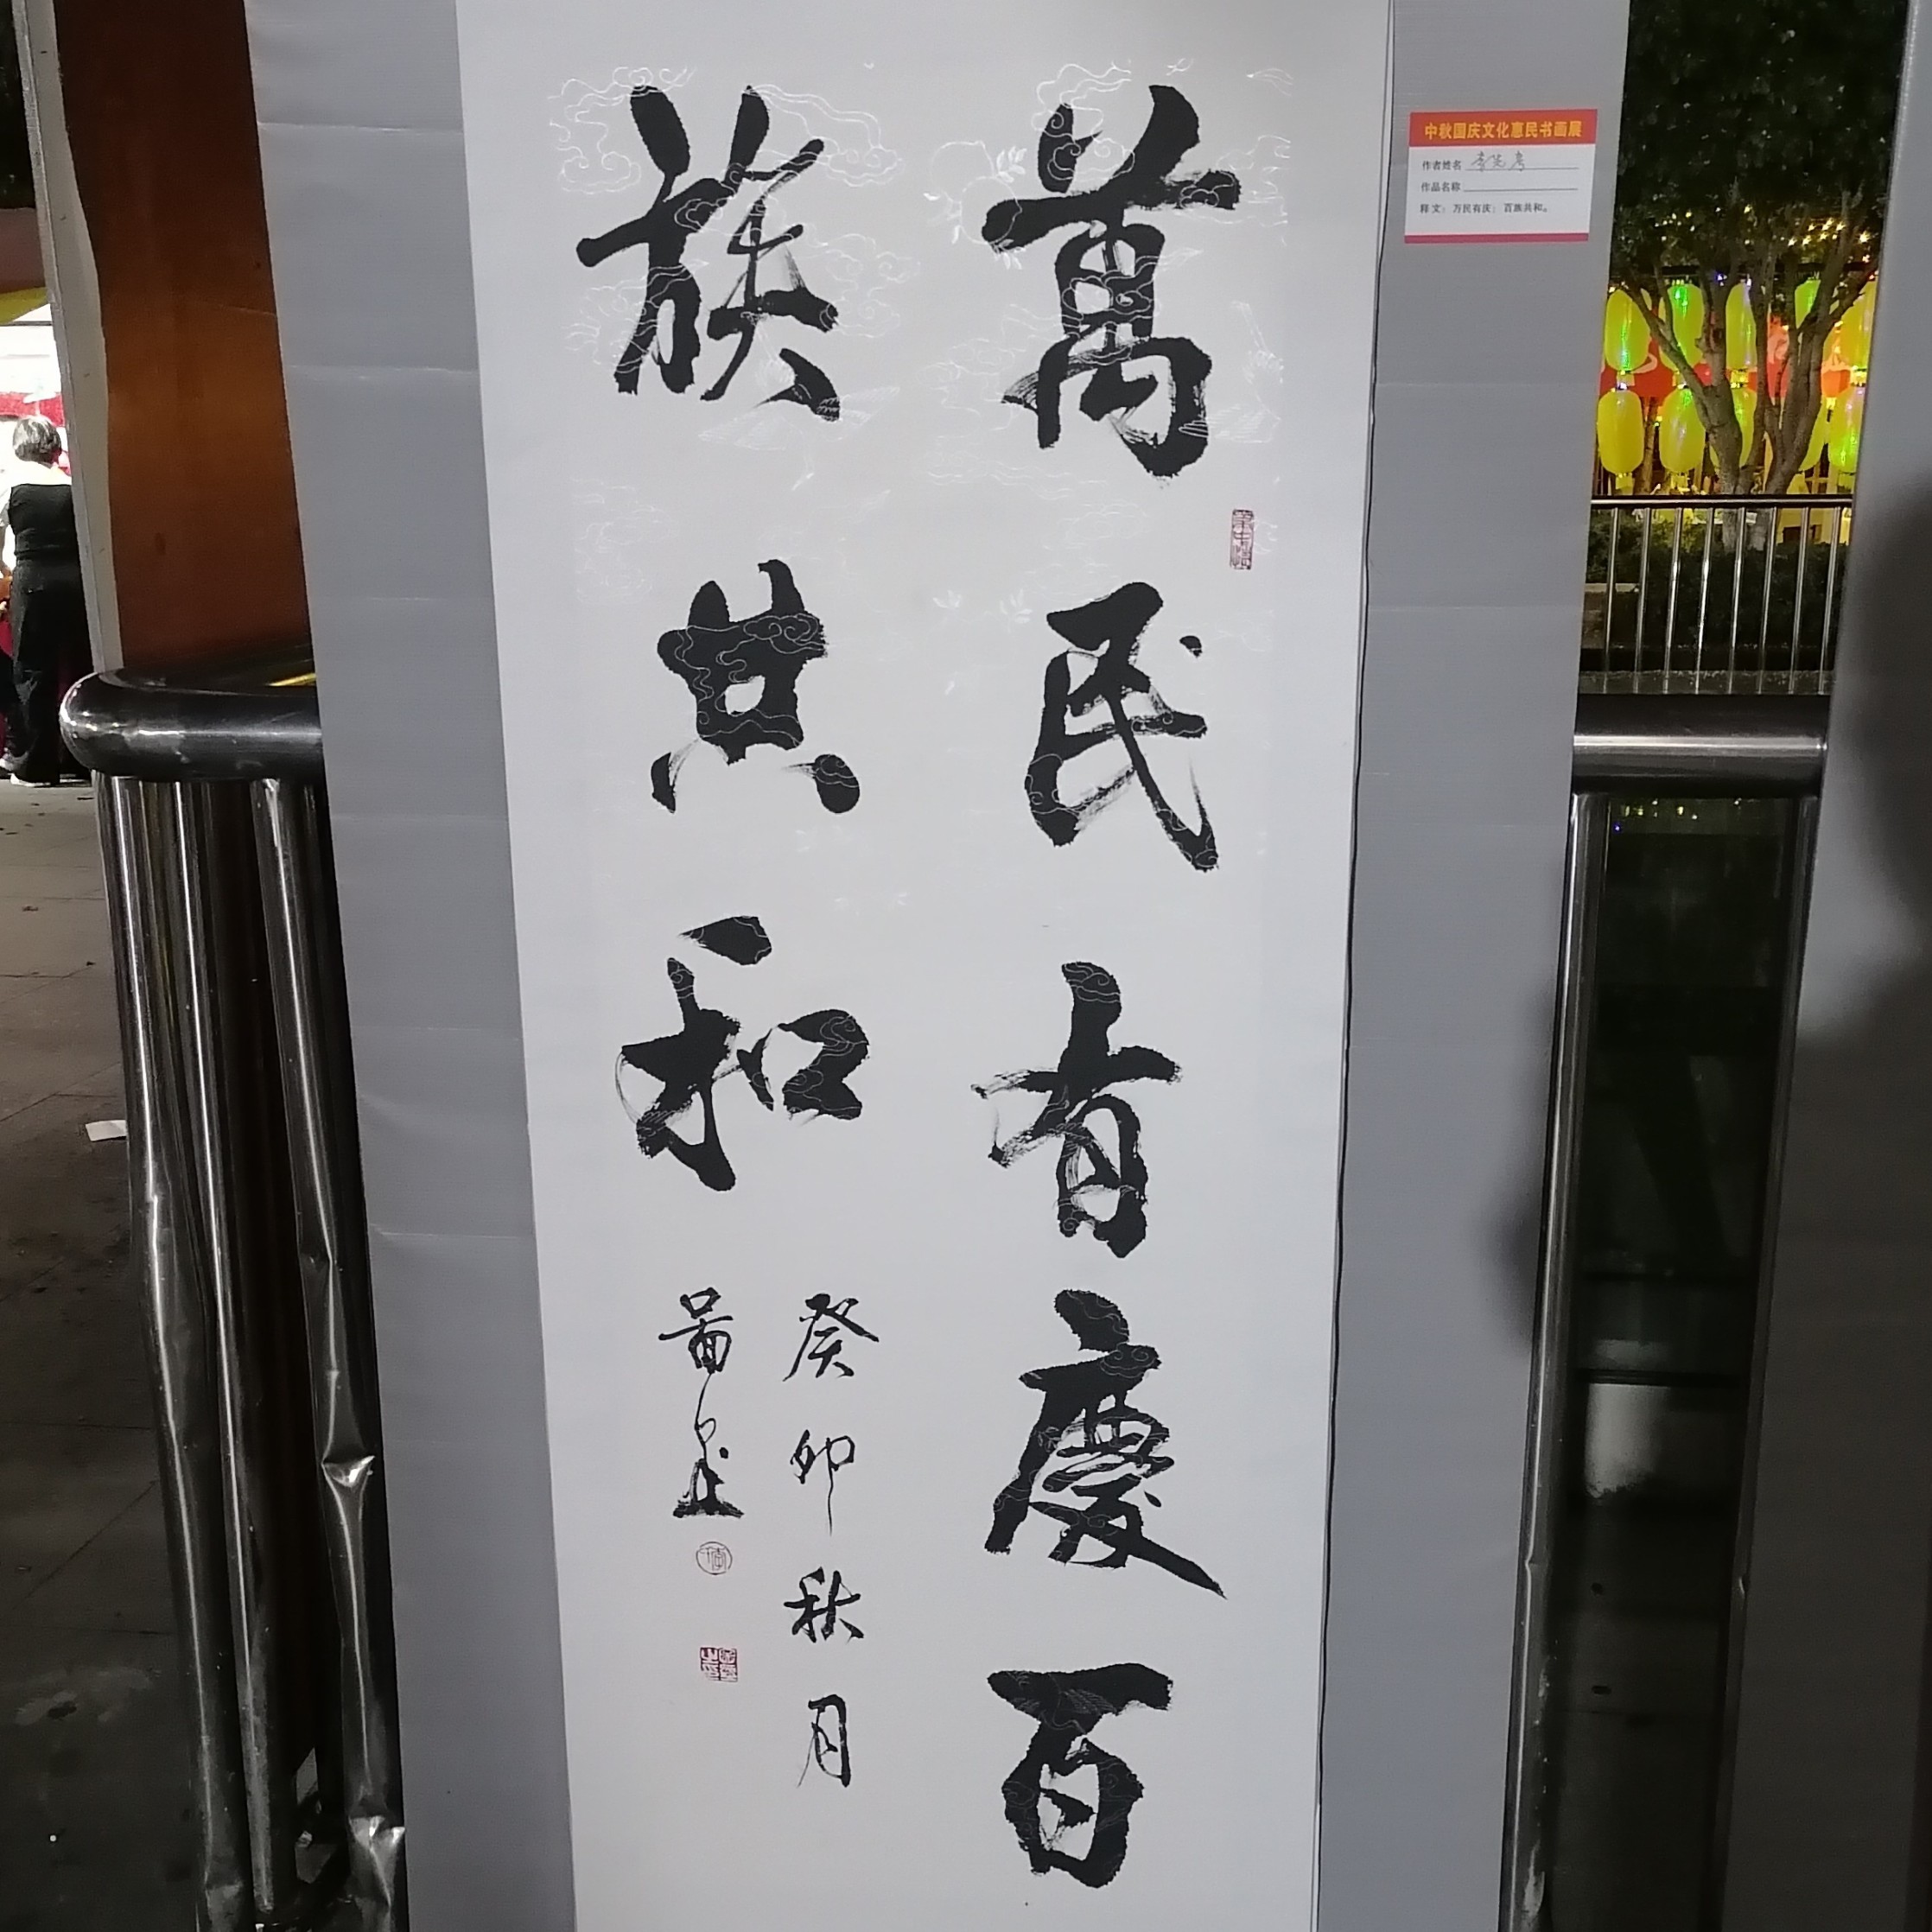 萬民有慶百
族共和
癸卯秋月
中秋国庆文化惠民书画展
作者姓名
作品名称
释文：万民有庆；百族共和。